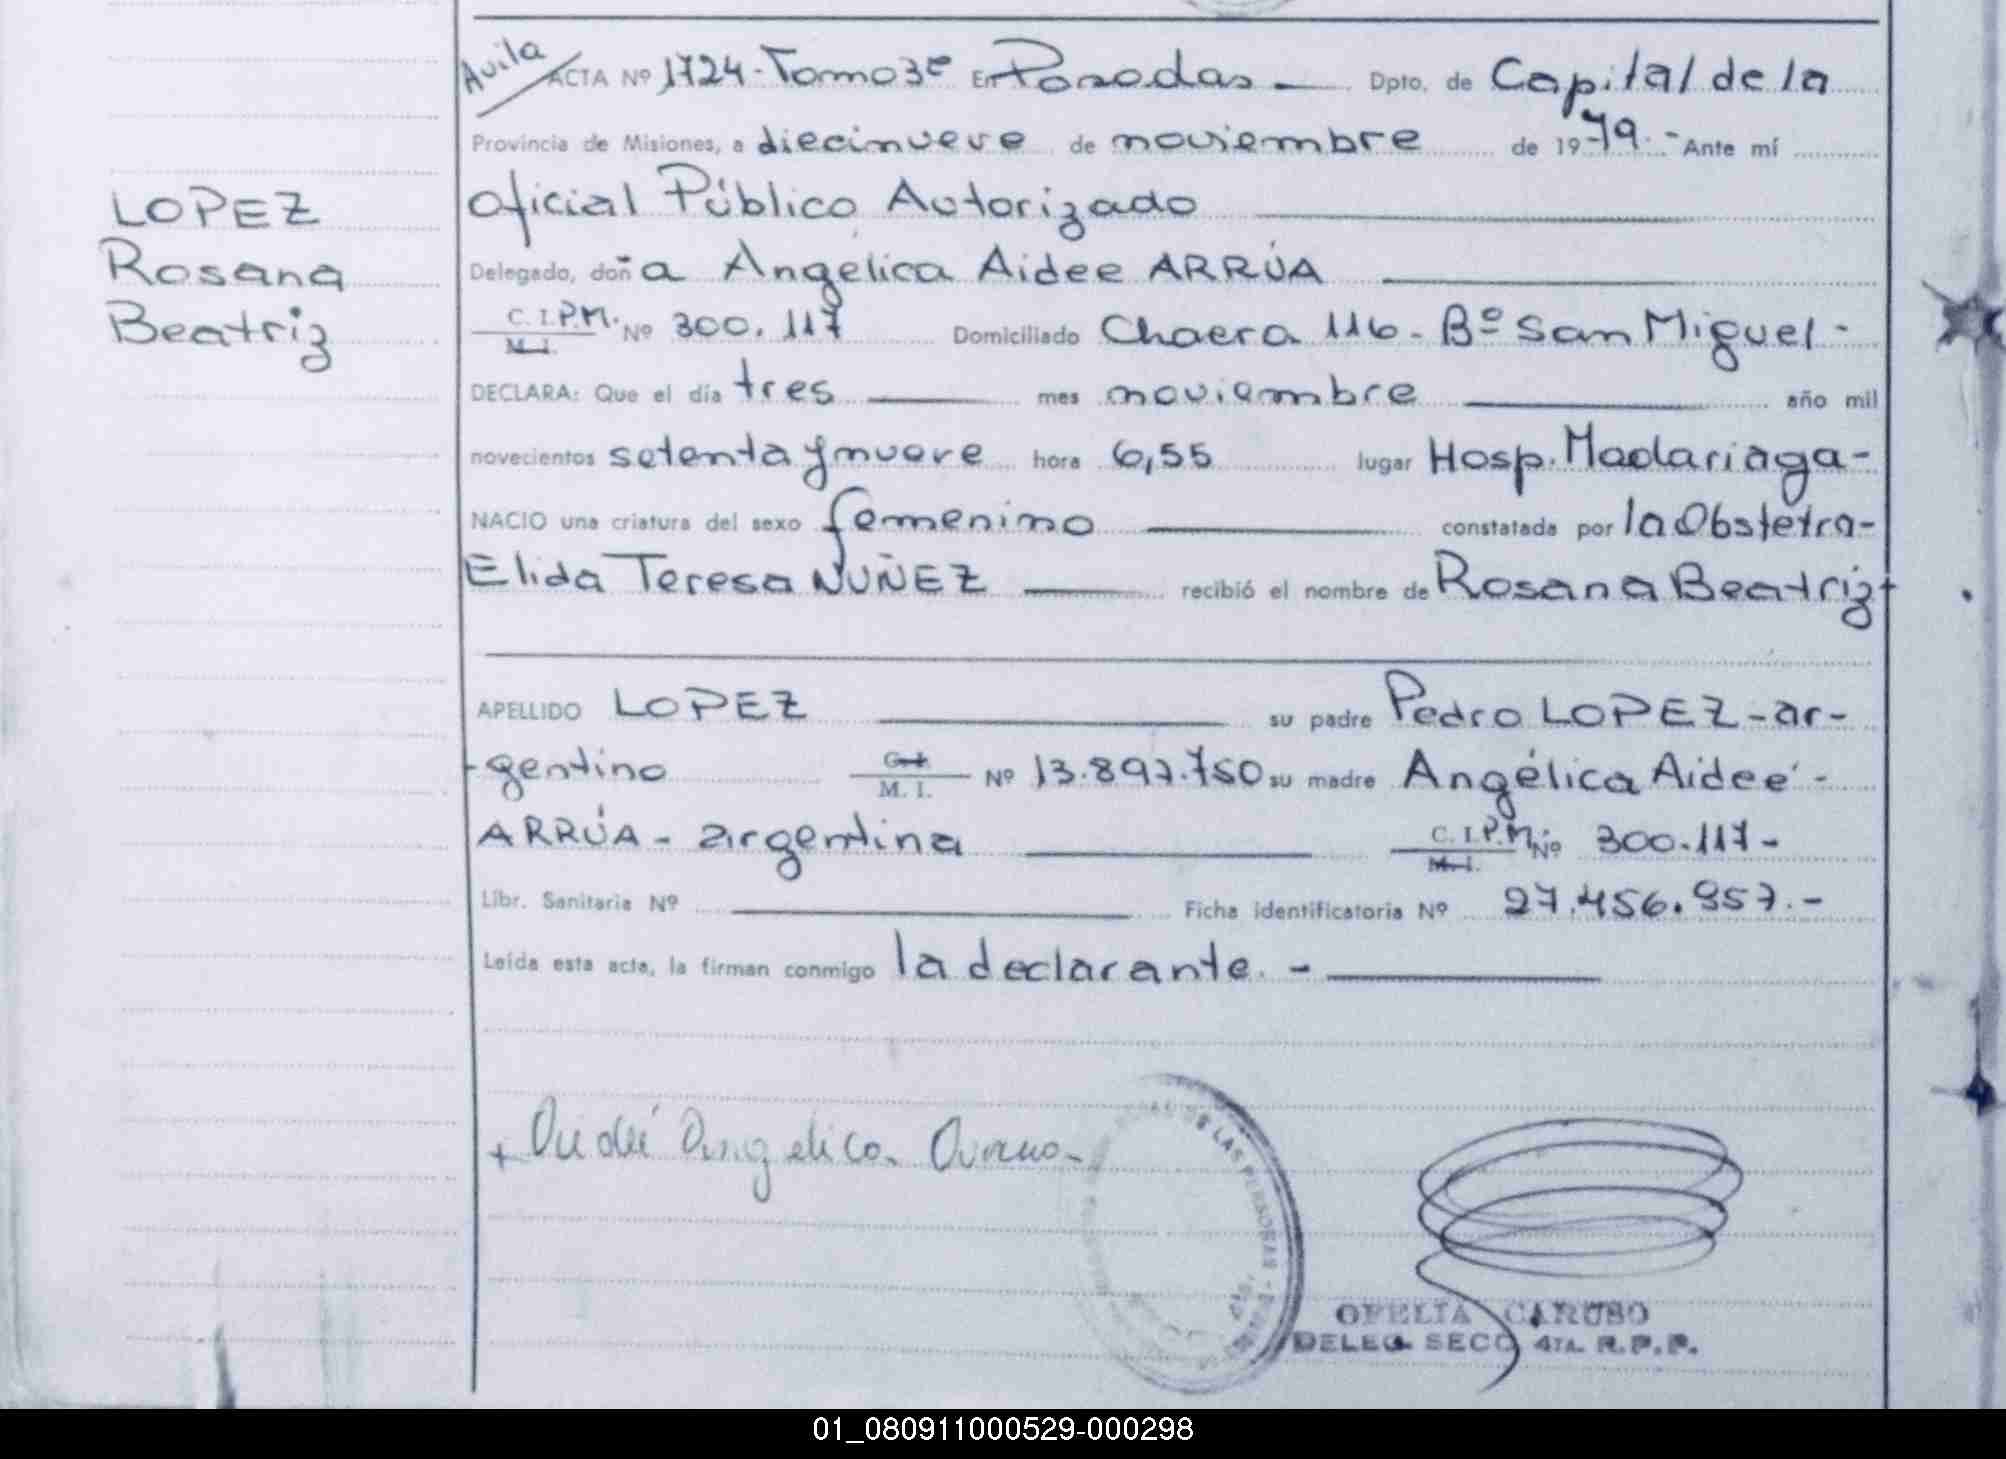 Avila
ACTA Nº 1724-Tomo 3º En Posadas - Dpto. de Capital de la
Provincia de Misiones, a diecinueve de noviembre de 1979.- Ante mí
Oficial Público Autorizado
LOPEZ
Rosana
Beatriz
Delegado, doña Angélica Aidee ARRÚA
C. I.P.M. Nº 300.117 Domiciliado Chacra 116- Bº San Miguel-
M. I.
DECLARA: Que el día tres mes noviembre año mil
novecientos setenta y nueve hora 6,55 lugar Hosp. Madariaga-
NACIO una criatura del sexo femenino constatada por la Obstetra-
Elida Teresa NUÑEZ recibió el nombre de Rosana Beatriz
APELLIDO LOPEZ su padre Pedro LOPEZ-ar-
-gentino C. I. M. I. Nº 13.897.750 su madre Angélica Aideé-
ARRÚA- argentina C. I.P.M. M. I. Nº 300.117-
Libr. Sanitaria Nº Ficha identificatoria Nº 27.456.957.-
Leída esta acta, la firman conmigo la declarante. -
+ Aideé Angelica Arrua
DE LAS PERSONAS
OFELIA CARUSO
DELEG. SECC 4TA. R.P.P.
01_080911000529-000298